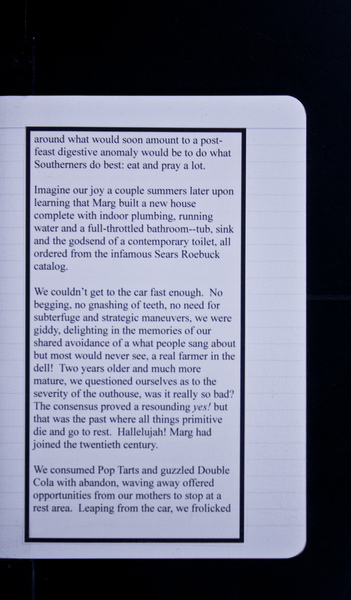 around what would soon amount to a post-
feast digestive anomaly would be to do what
Southerners do best: eat and pray a lot.
Imagine our joy a couple summers later upon
learning that Marg built a new house
complete with indoor plumbing, running
water and a full-throttled bathroom--tub, sink
and the godsend of a contemporary toilet, all
ordered from the infamous Sears Roebuck
catalog.
We couldn't get to the car fast enough. No
begging, no gnashing of teeth, no need for
subterfuge and strategic maneuvers, we were
giddy, delighting in the memories of our
shared avoidance of a what people sang about
but most would never see, a real farmer in the
dell! Two years older and much more
mature, we questioned ourselves as to the
severity of the outhouse, was it really so bad?
The consensus proved a resounding yes! but
that was the past where all things primitive
die and go to rest. Hallelujah! Marg had
joined the twentieth century.
We consumed Pop Tarts and guzzled Double
Cola with abandon, waving away offered
opportunities from our mothers to stop at a
rest area. Leaping from the car, we frolicked